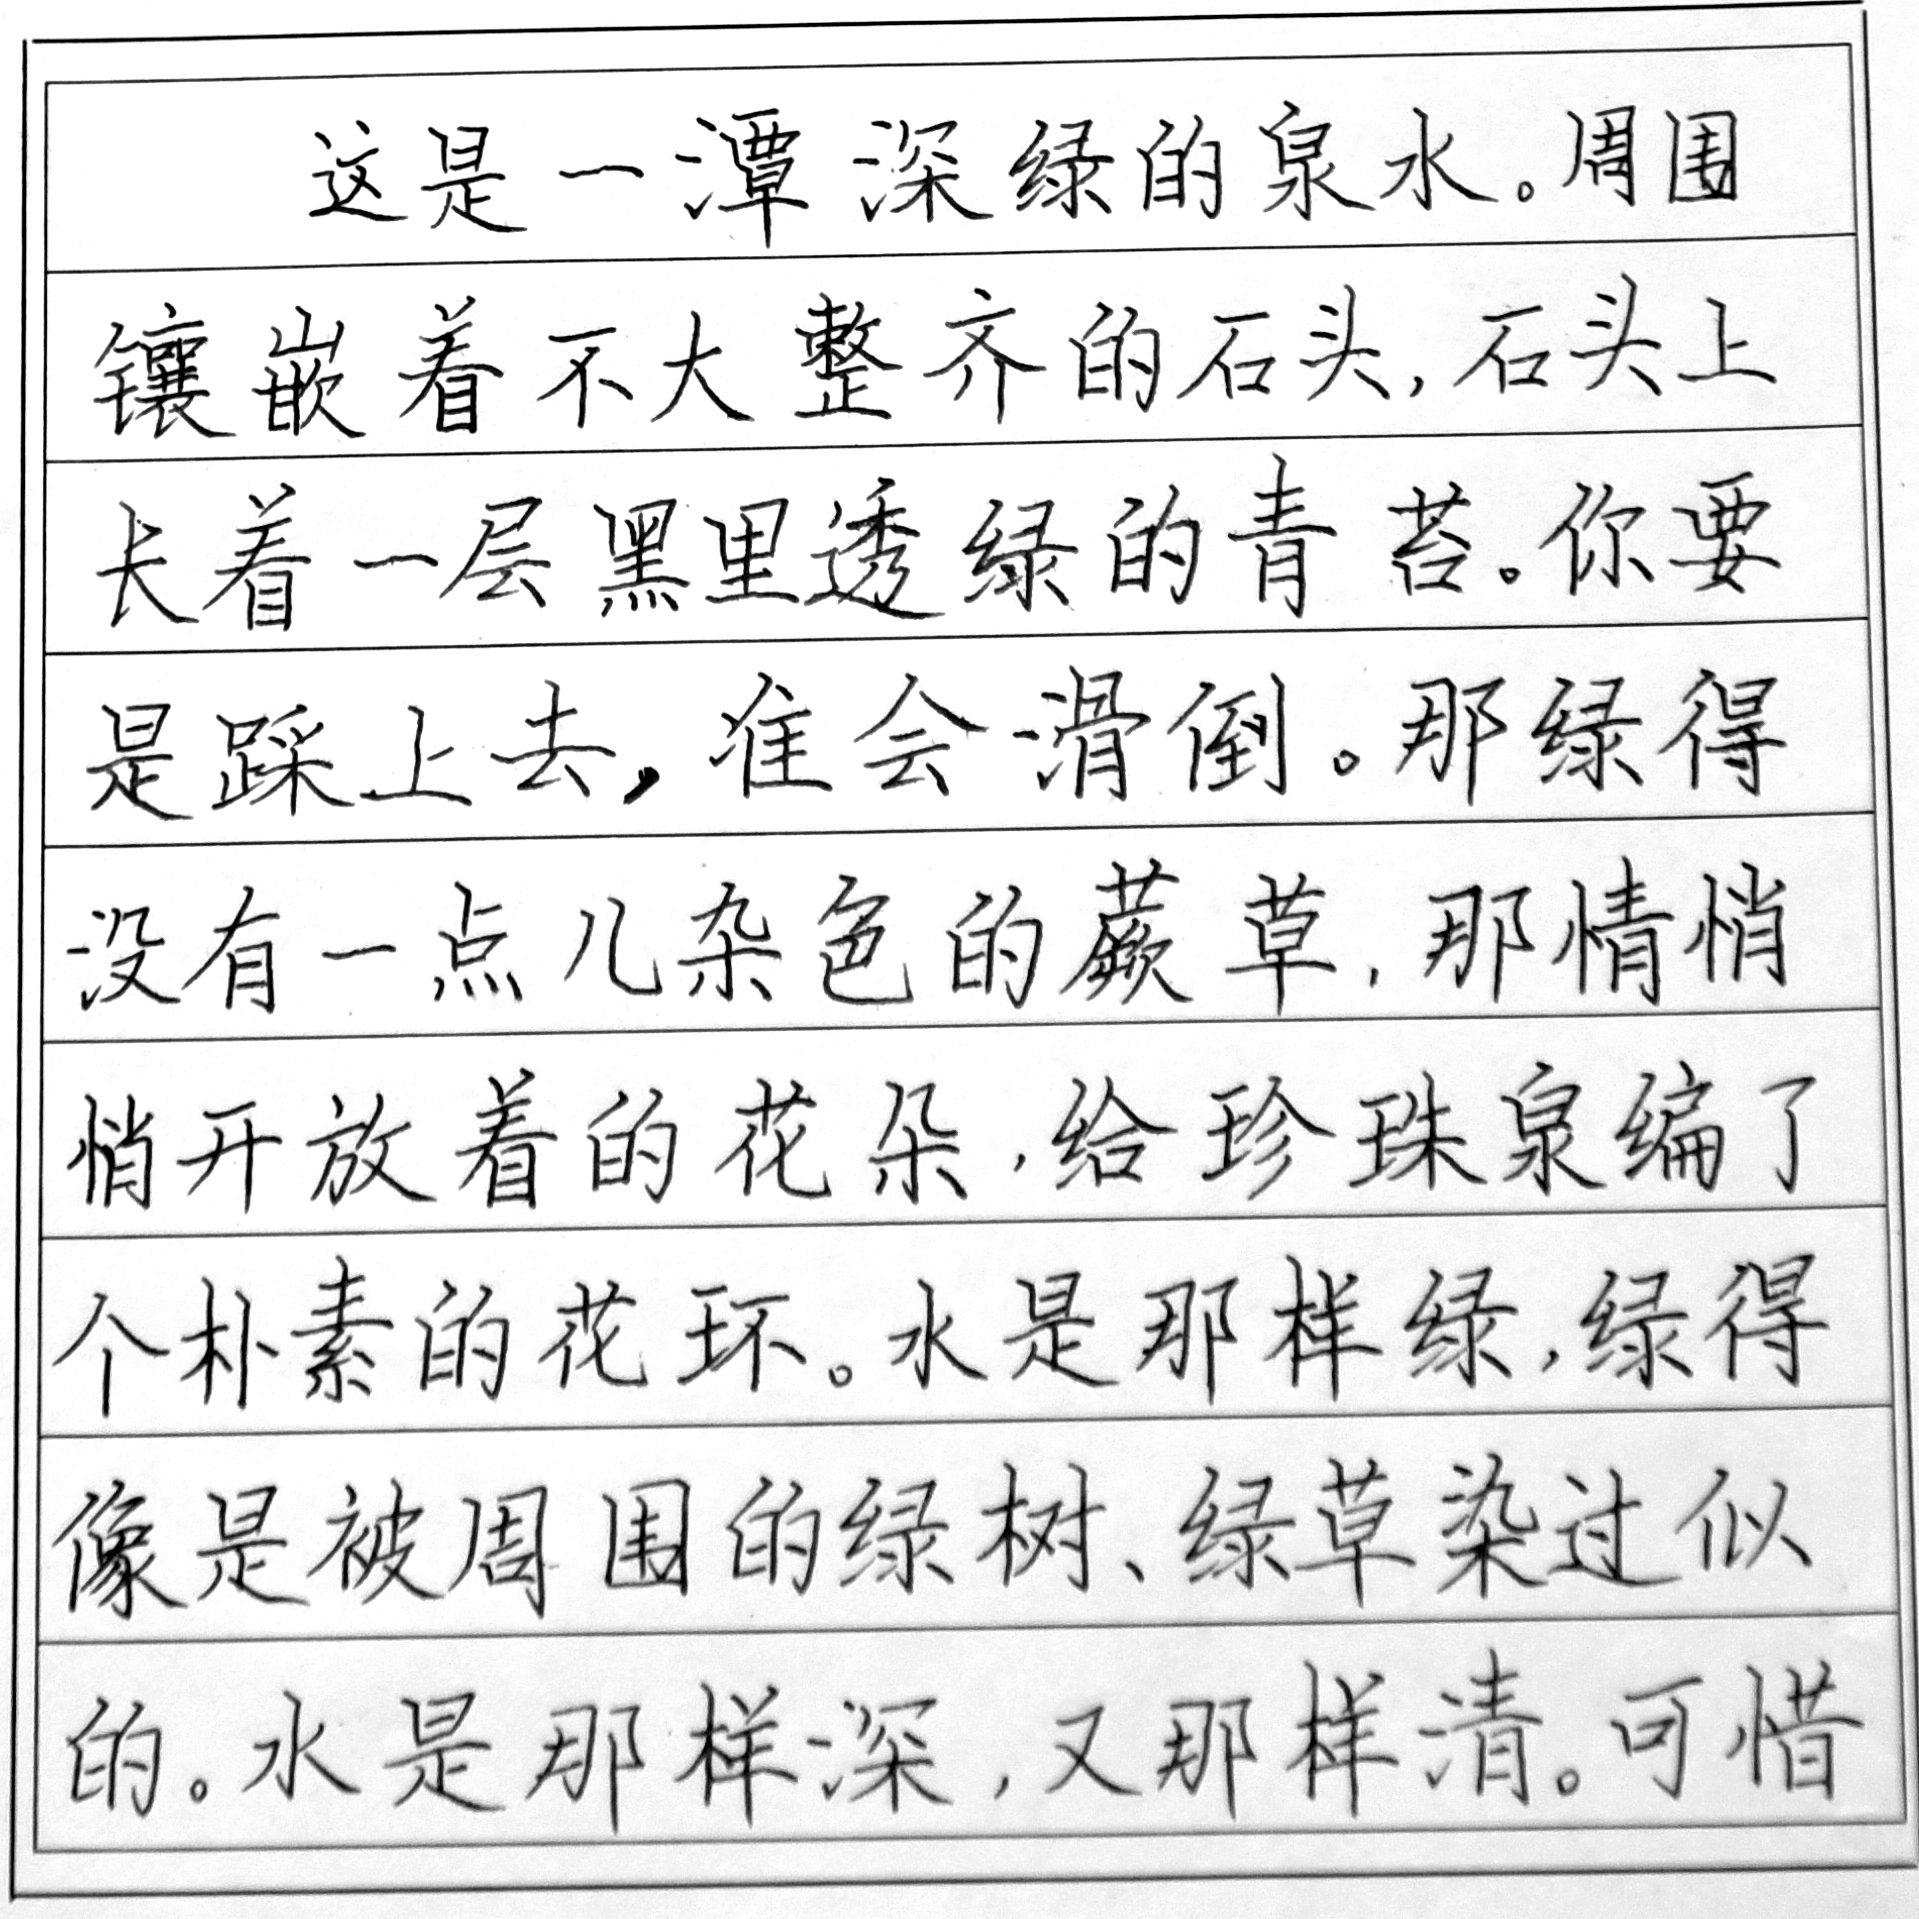 这是一潭深绿的泉水。周围
镶嵌着不大整齐的石头,石头上
长着一层黑里透绿的青苔。你要
是踩上去,准会滑倒。那绿得
没有一点儿杂色的蕨草,那情悄
悄开放着的花朵,给珍珠泉编了
个朴素的花环。水是那样绿,绿得
像是被周围的绿树、绿草染过似
的。水是那样深,又那样清。可惜